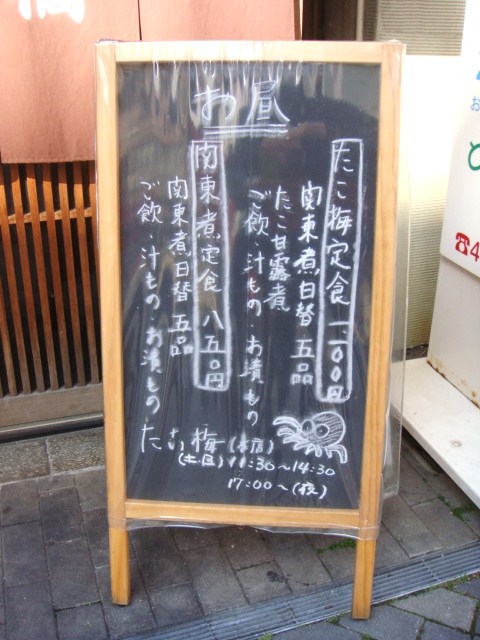 お昼
たこ梅定食 一、二〇〇円
関東煮日替 五品
たこ甘露煮
ご飯・汁もの・お漬もの
関東煮定食 八五〇円
関東煮日替 五品
ご飯・汁もの・お漬もの
たこ梅(本店)
(土・日) 11:30〜14:30
17:00〜(夜)
お
☎4